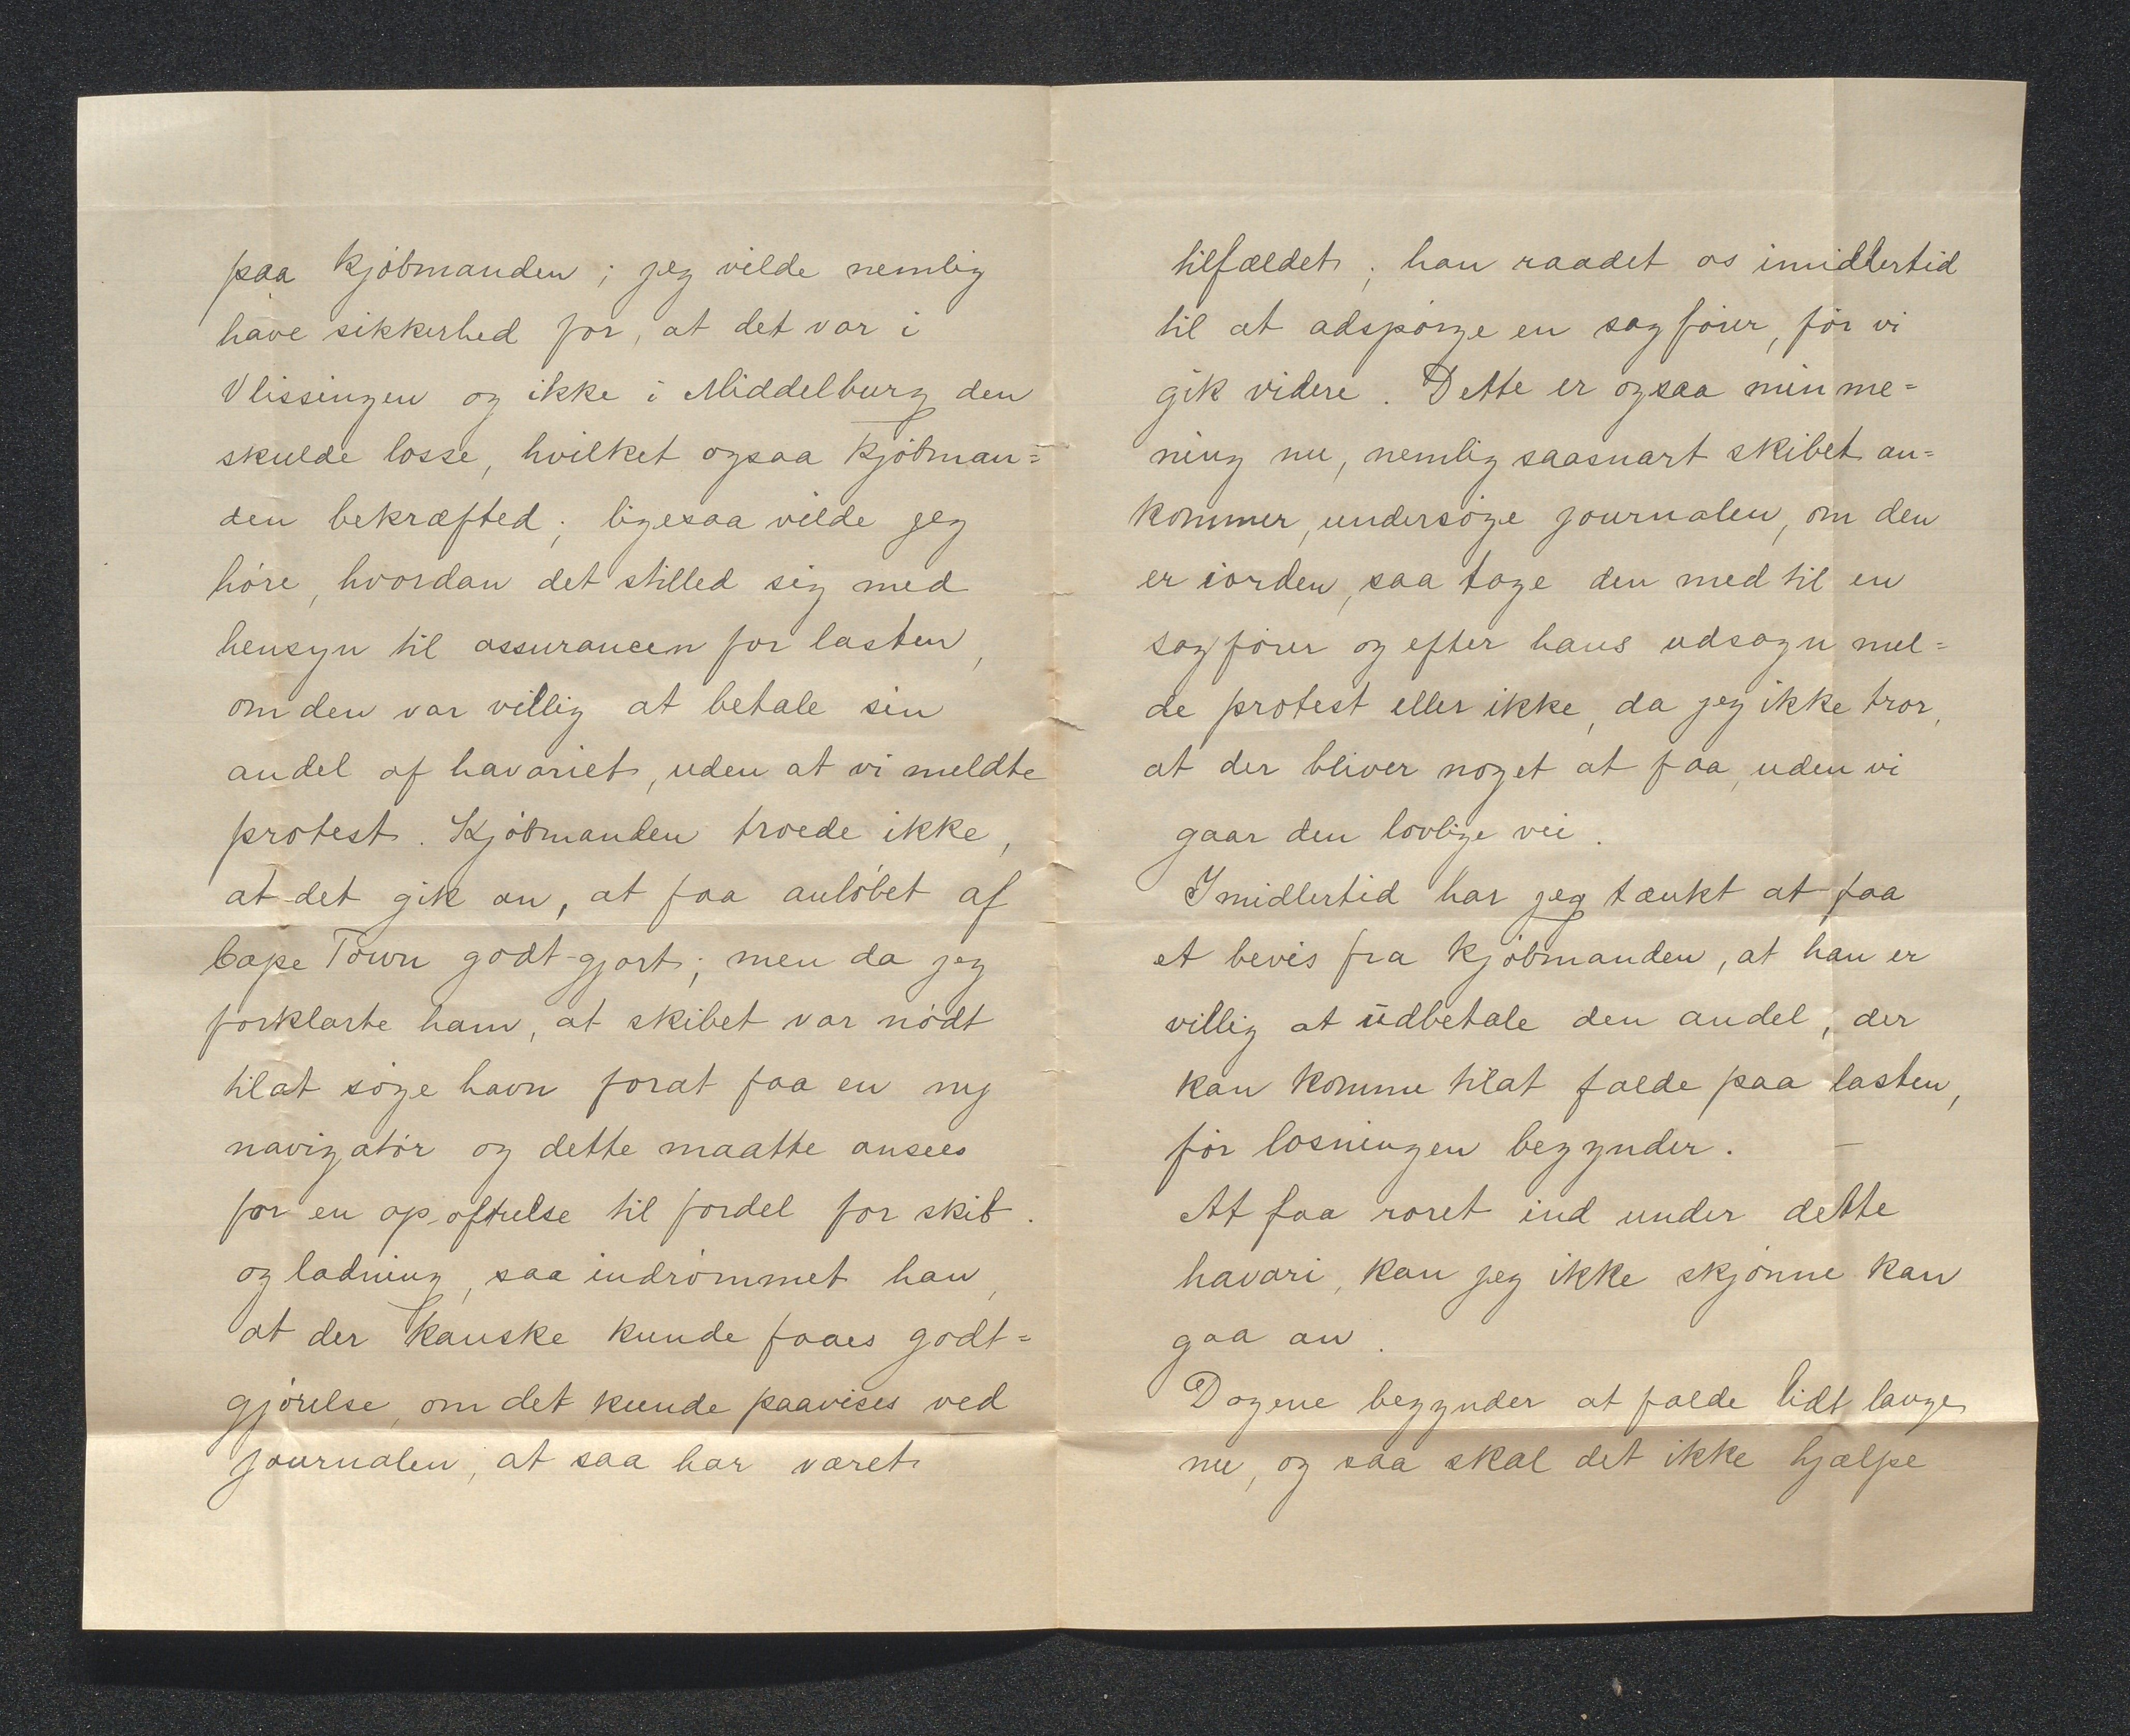 paa kjöbmanden; jeg vilde nemlig
have sikkerhed for, at det var i
Vlissingen og ikke i Middelburg den
skulde losse, hvilket ogsaa kjöbman=
den bekræfted; ligesaa vilde jeg
höre, hvordan det stilled sig med
hensyn til assurancen for lasten,
om den var villig at betale sin
andel af havariet, uden at vi meldte
protest. Kjöbmanden troede ikke,
at det gik an, at faa anlöbet af
Cape Town godt-gjort; men da jeg
forklarte ham, at skibet var nödt
til at söge havn forat faa en ny
navigatör og dette maatte ansees
for en opofrelse til fordel for skib.
og ladning, saa indrömmet han,
at der kanske kunde faaes godt=
gjörelse, om det kunde paavises ved
journalen, at saa har været
tilfældet; han raadet os imidlertid
til at adspörge en sagförer, för vi
gik videre. Dette er ogsaa min me=
ning nu, nemlig saasnart skibet an=
kommer, undersöge journalen, om den
er iorden, saa tage den med til en
sagförer og efter hans udsagn mel=
de protest eller ikke, da jeg ikke tror,
at der bliver noget at faa, uden vi
gaar den lovlige vei.
Imidlertid har jeg tænkt at faa
et bevis fra kjöbmanden, at han er
villig at udbetale den andel, der
kan komme tilat falde paa lasten,
för losningen begynder. —
At faa roret ind under dette
havari, kan jeg ikke skjönne kan
gaa an.
Dagene begynder at falde lidt lange
nu, og saa skal det ikke hjælpe